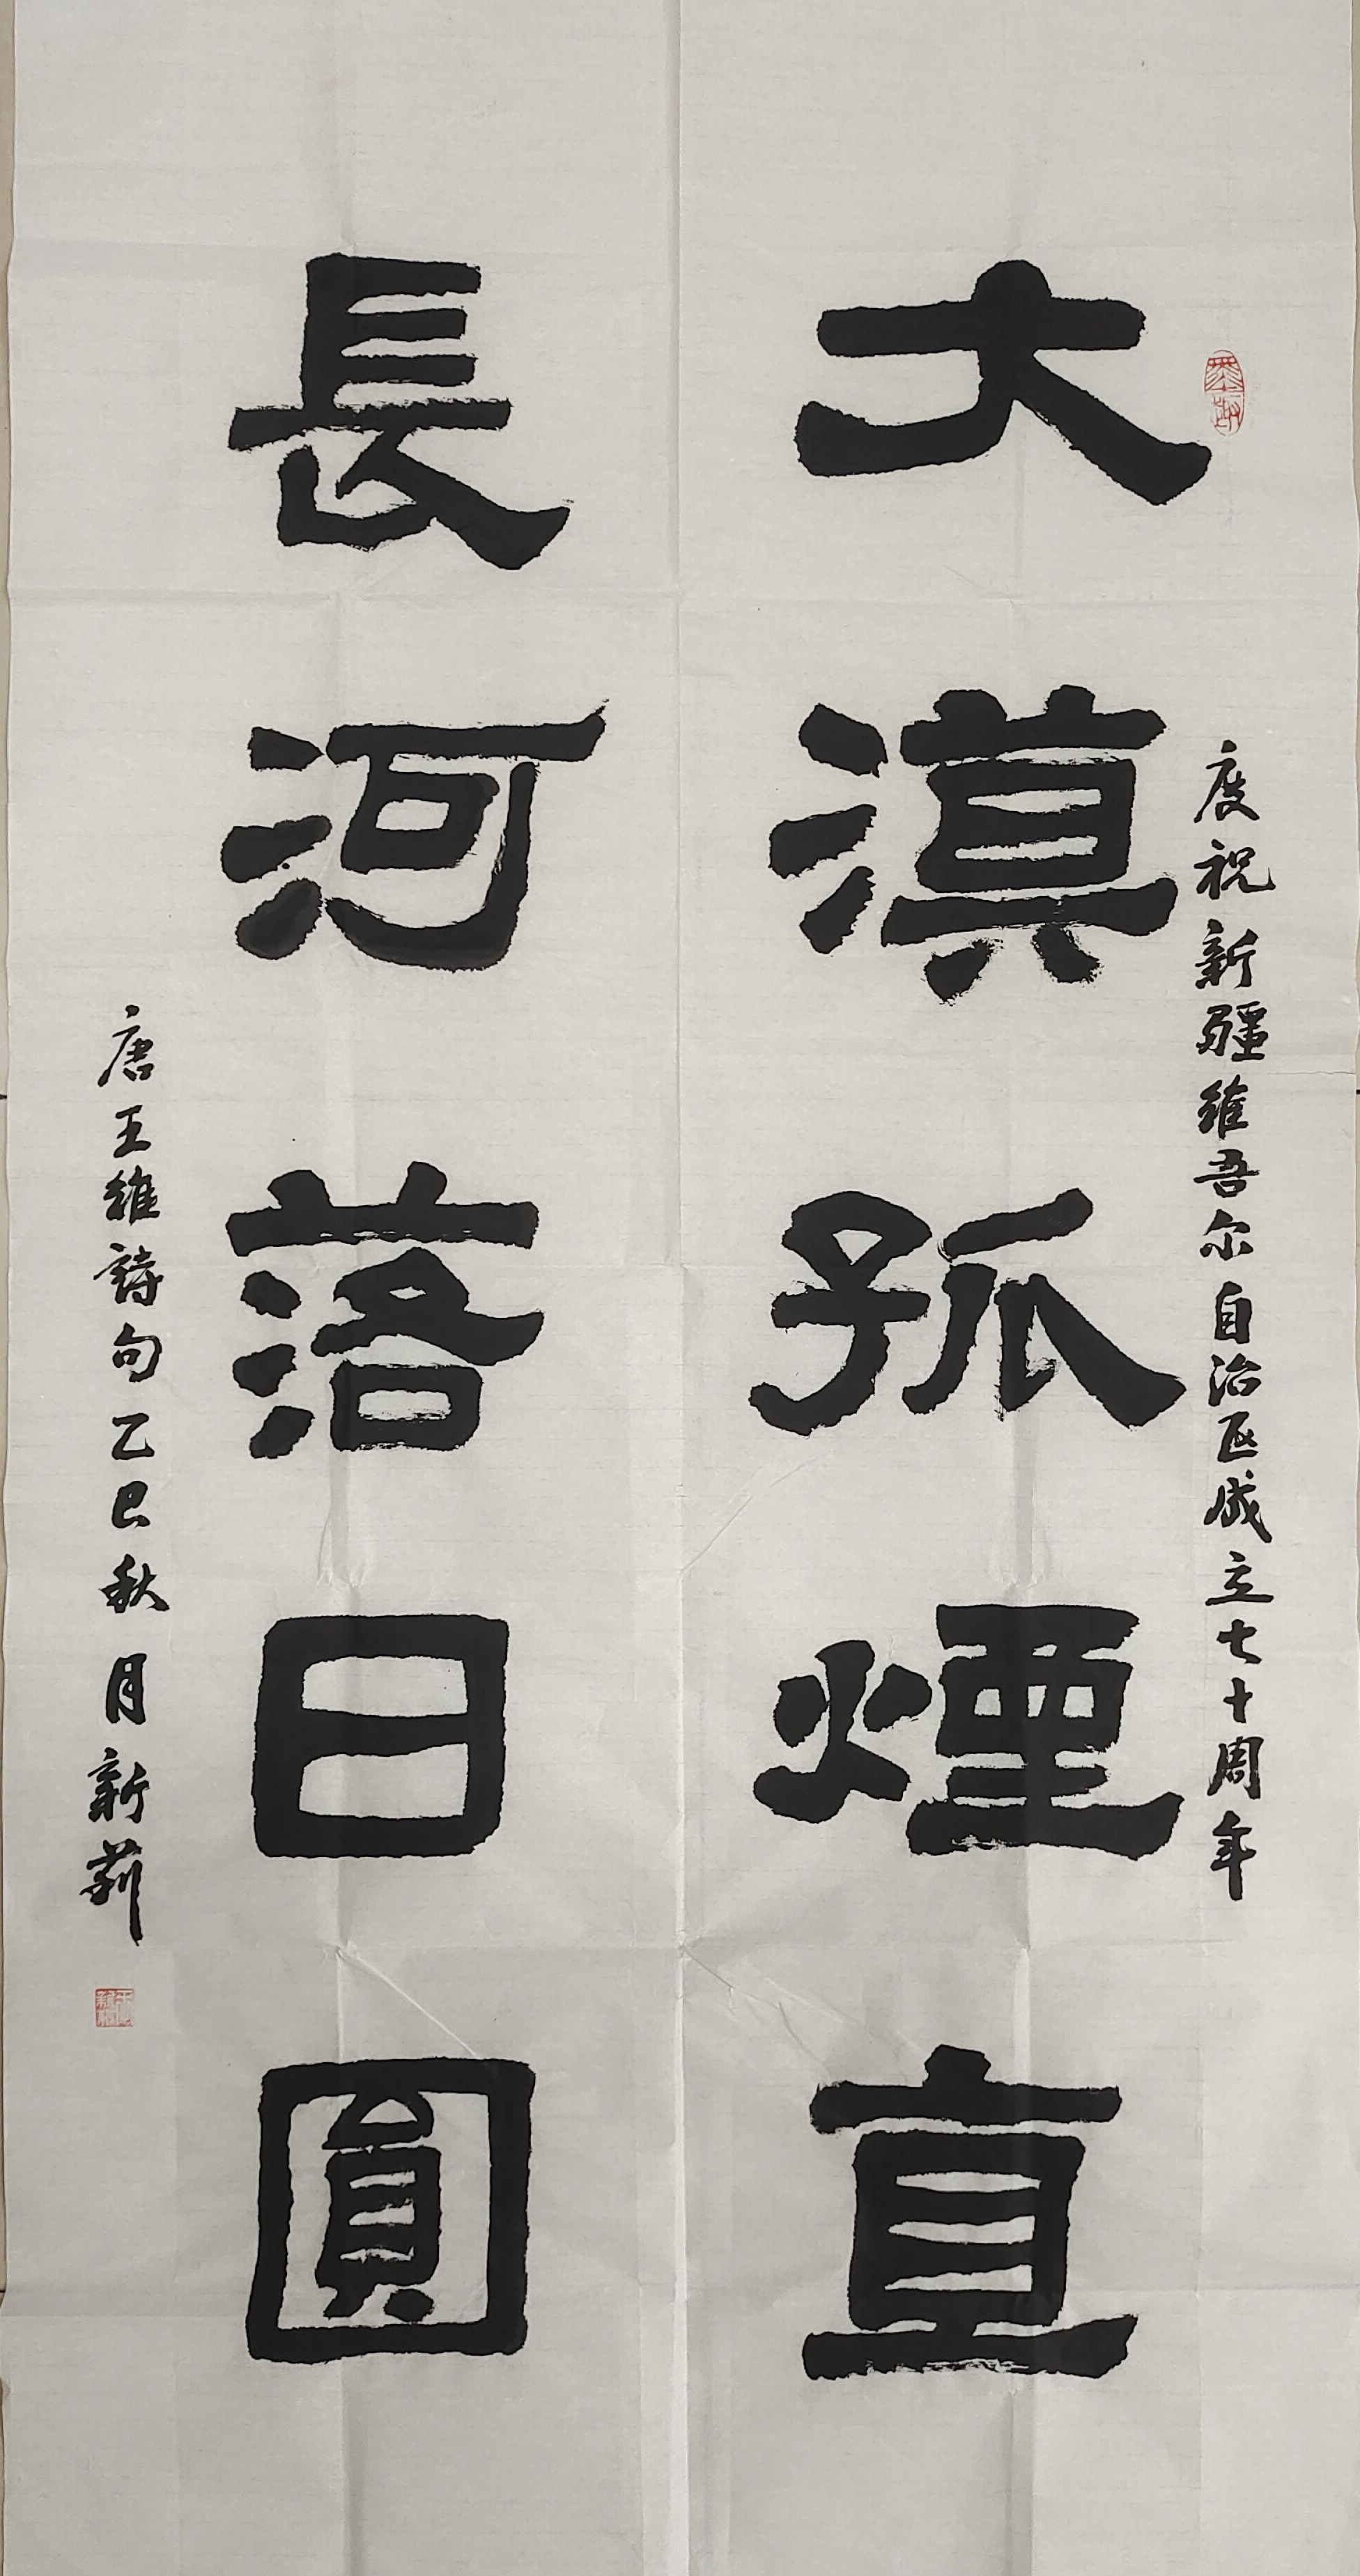 大漠孤煙直
慶祝新疆維吾尔自治区成立七十周年
長河落日圓
唐王維詩句乙巳秋月新莉